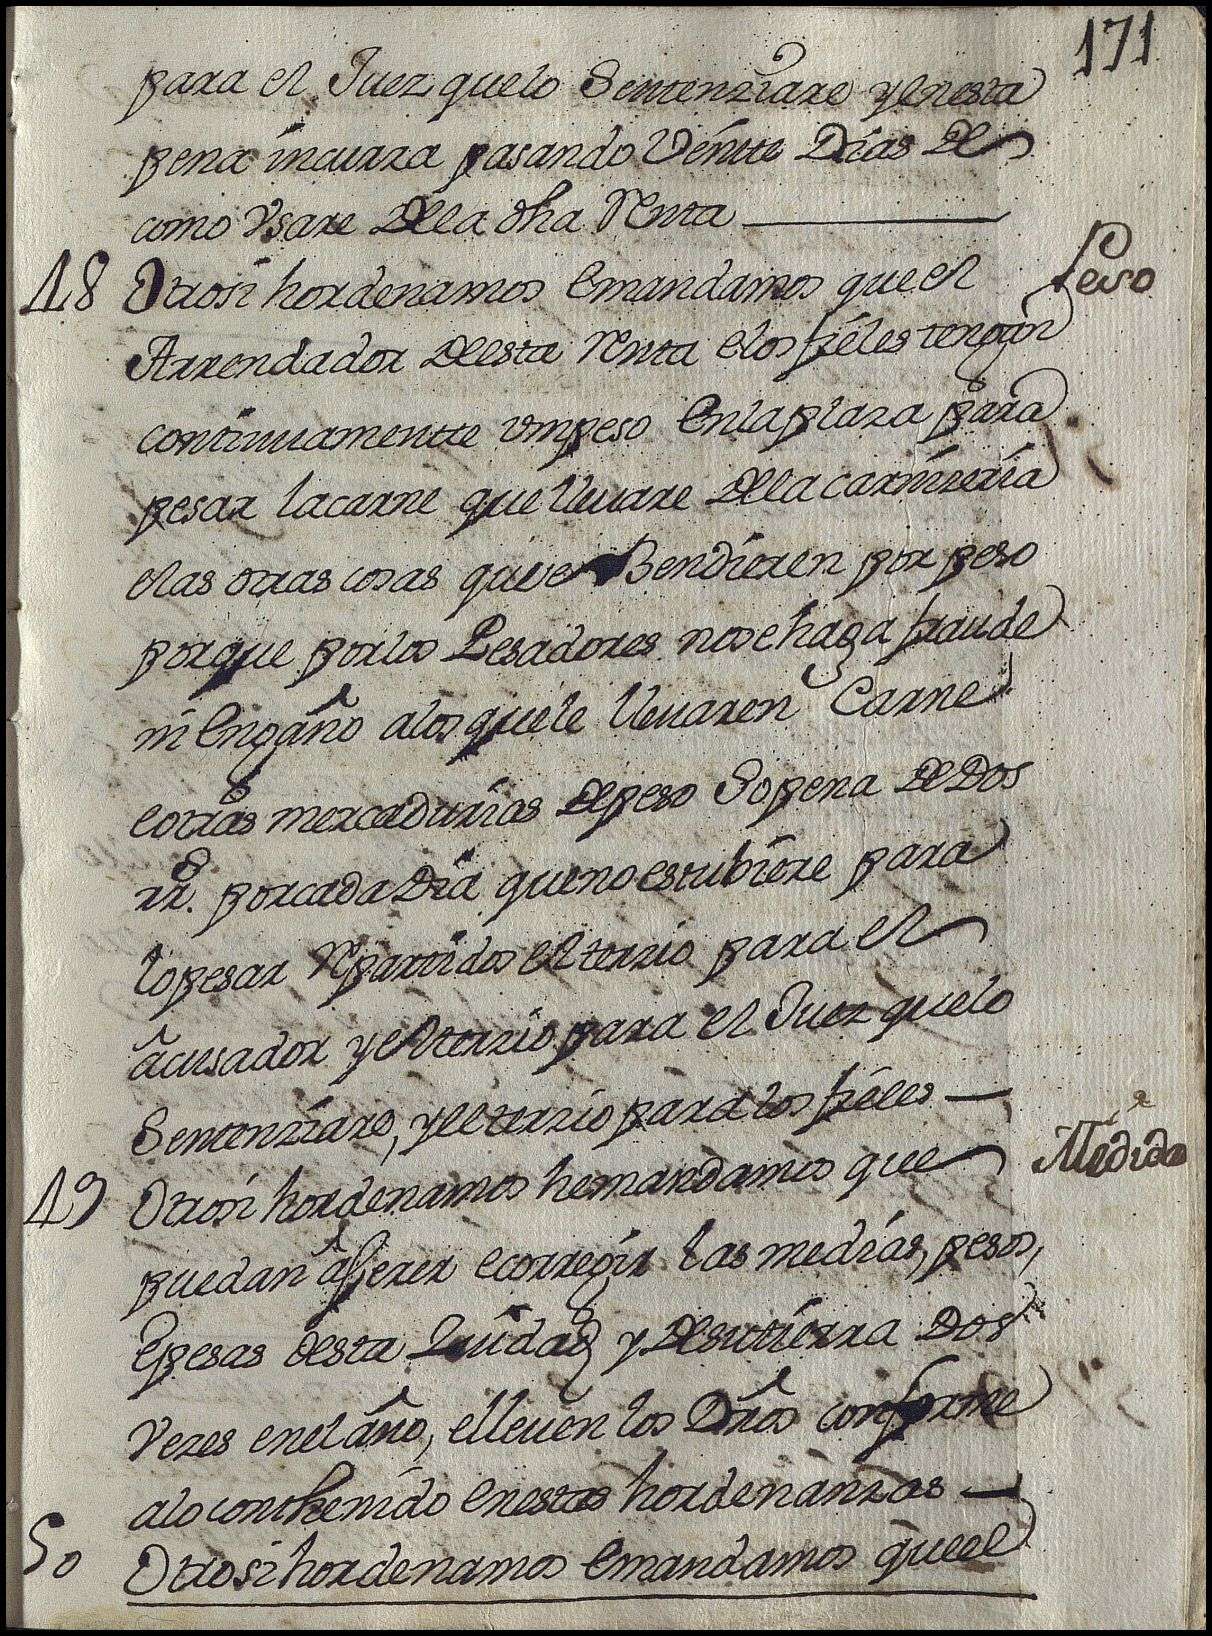 171
para el Juez quelo Sentenziare y enesta
pena incurra pasando Veinte Dias De
como Vsare Dela dha Renta
48 Otrosi hordenamos emandamos que el
Peso
Arrendador Desta renta elos fieles tengan
continuamente vmpeso Enlaplaza para
pesar lacarne que lleuare Dela carnizeria
elas otras cosas que se Bendieren por peso
porque porlos Pesadores nose haga fraude
ni Engaño alos quele lleuaren Carne
eotras mercadurias Depeso Sopena De Dos
rs. porcada Dia queno estubiere para
lo pesar Repartidos el terzio para el
acusador y el terzio para el Juez quelo
Sentenziare, y el terzio para los fieles
Medida
49 Otrosi hordenamos hemandamos que
puedan aferer ecorregir las medias, pesos,
Epesas desta Ziudad y Desutierra Dos
Vezes enel año, elleuen los Dros conforme
alo conthenido Enestas hordenanzas
50 Otrosi hordenamos Emandamos queel